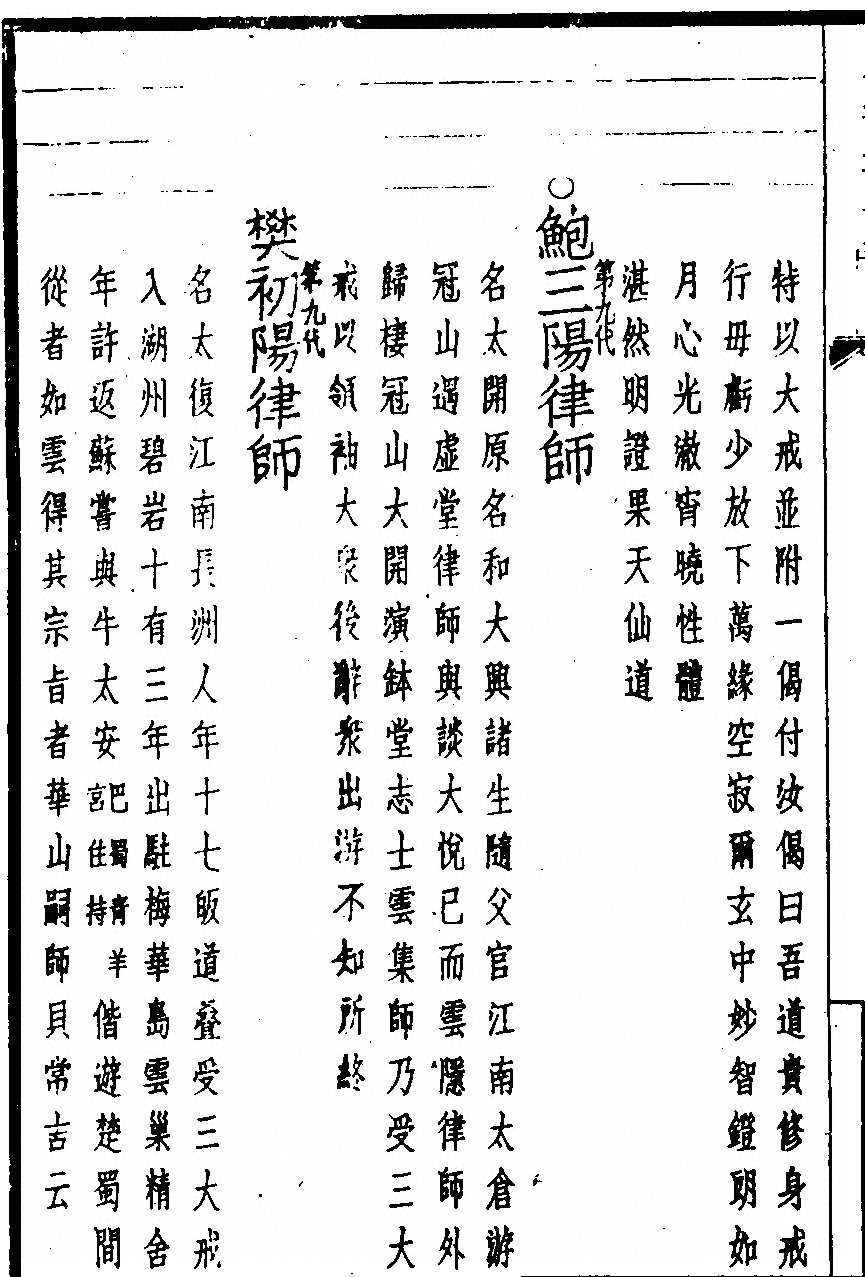 特以大戒並附一偈付汝偈曰吾道貴修身戒
行毋虧少放下萬緣空寂爾玄中妙智鐙朗如
月心光澈宵曉性體
湛然明證果天仙道
第九代
○鮑三陽律師
名太開原名和大興諸生隨父官江南太倉游
冠山遇虛堂律師與談大悅已而雲隱律師外
歸棲冠山大開演鉢堂志士雲集師乃受三大
戒以領袖大眾後辭眾出游不知所終
第九代
樊初陽律師
名太復江南長洲人年十七皈道叠受三大戒
入湖州碧岩十有三年出駐梅華島雲巢精舍
年許返蘇嘗與牛太安巴蜀青羊宮住持偕遊楚蜀間
從者如雲得其宗旨者華山嗣師貝常吉云